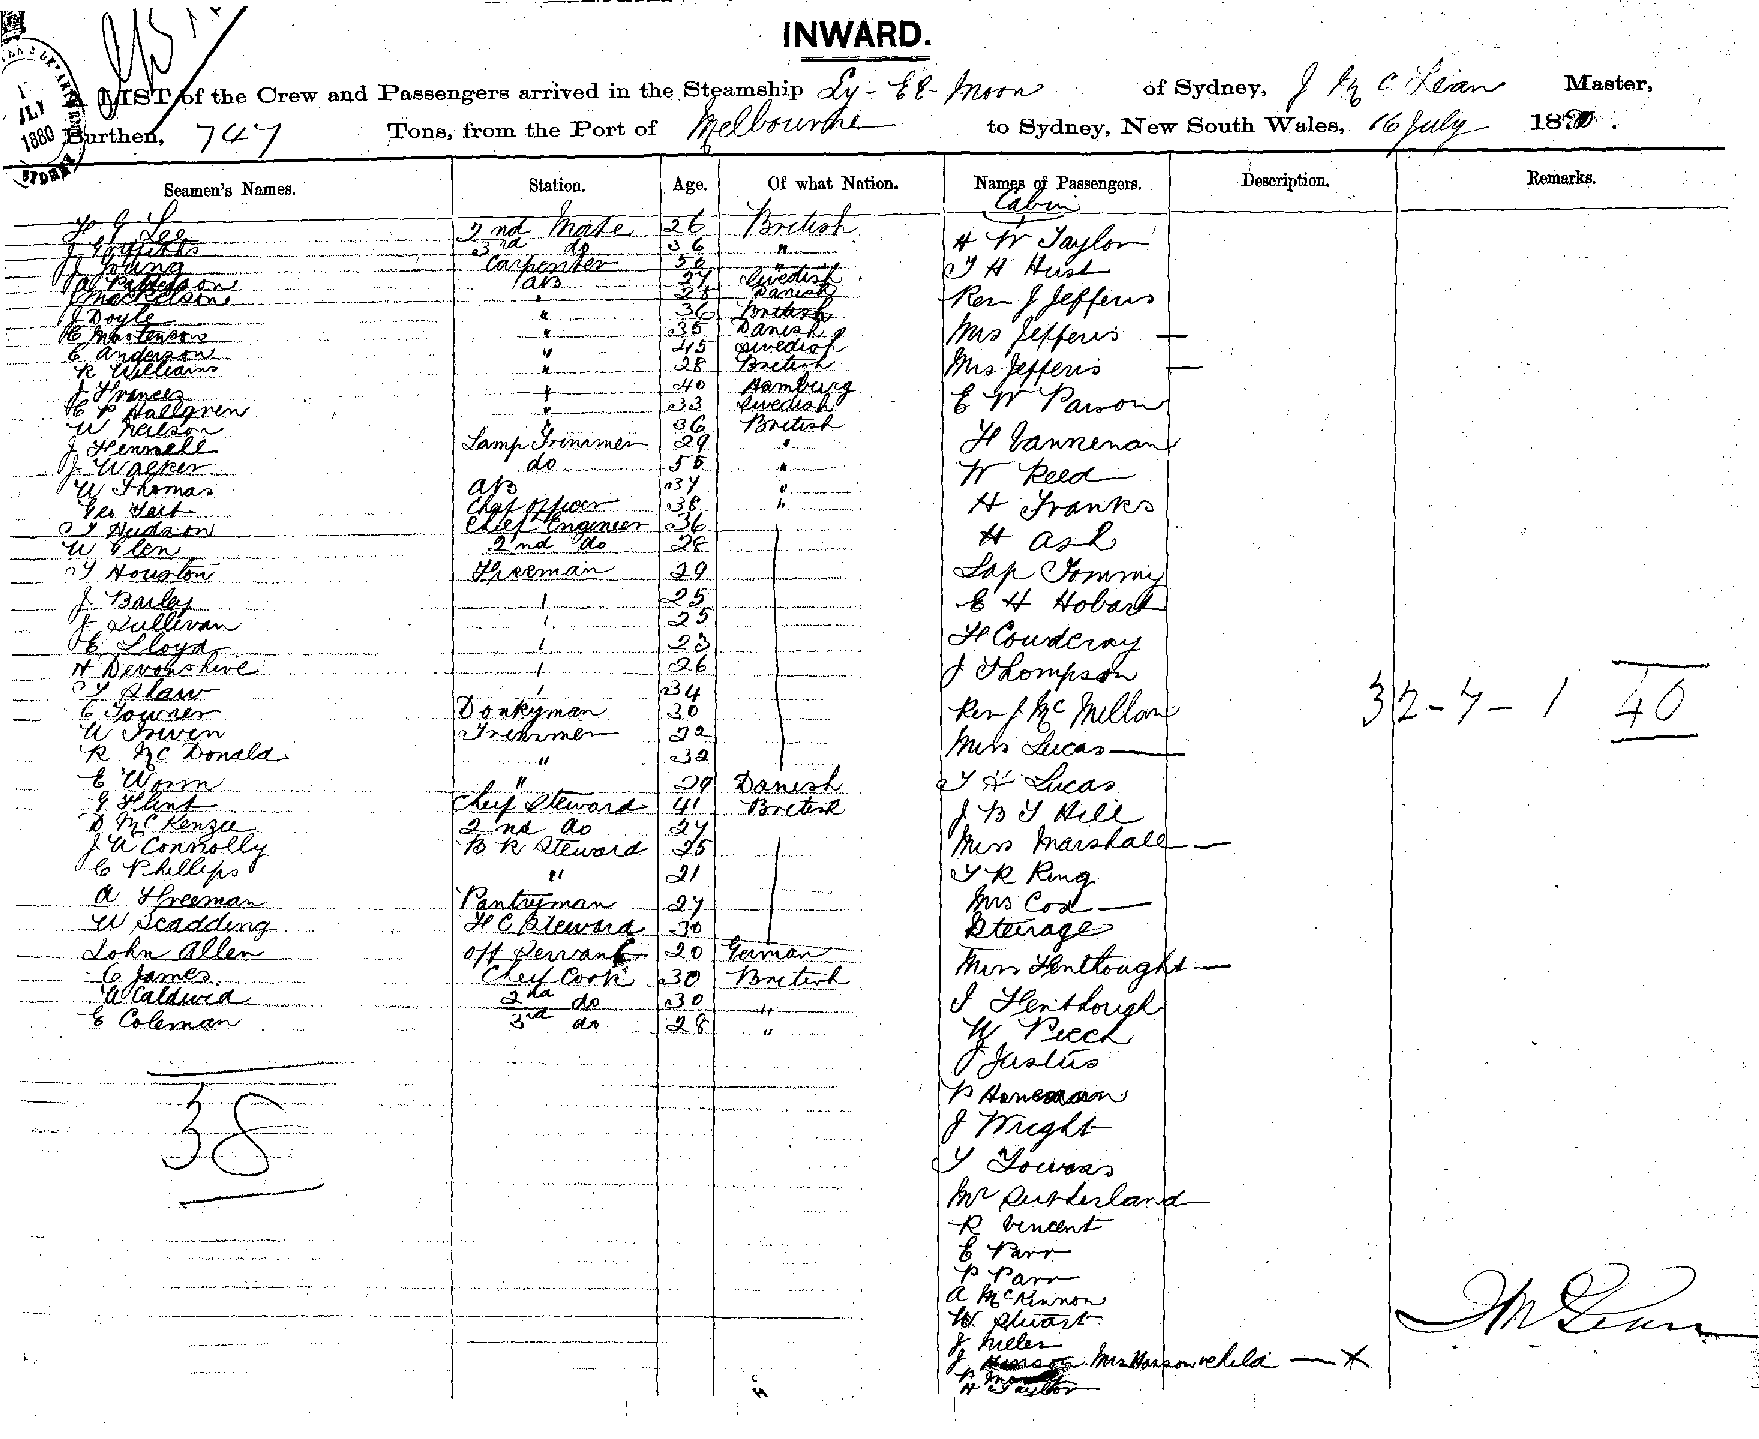 INWARD.
LIST of the Crew and Passengers arrived in the Steamship Ly-EE-Moon of Sydney, J McLean Master,
Burthen, 747 Tons, from the Port of Melbourne to Sydney, New South Wales, 16 July 1880.
Seamen's Names. Station. Age. Of what Nation. Names of Passengers. Description. Remarks.
Cabin
Lee 2nd Mate 26 British H W Taylor
3rd do 36 "
J Young Carpenter 50 " T H Hust
Patterson AB 27 Swedish
" 28 Danish Rev J Jefferis
J Doyle " 36 British
C Mortenson " 35 Danish Mrs Jefferis —
C Anderson " 45 Swedish
R Williams " 28 British Miss Jefferis —
J Frances " 40 Hamburg
C P Hallgren " 33 Swedish E W Parson
W Neilson " 36 British
J Hennell Lamp Trimmer 29 " H Vannenan
J Walker do 55 "
W Thomas AB 37 " W Reed
Geo Tait Chef Officer 38 " H Franks
T Hudson Chief Engineer 36
W Glen 2nd do 28 H Ash
T Houston Freeman 29 Lap Tommy
J Bailey 25 E H Hobart
J Sullivan 25
E Lloyd 23 H Coudcray
H Devonshire 26 J Thompson
T Shaw 34
C Towner Donkyman 30 Rev J McMillan 32-7-1 40
W Irwin Trimmer 22
R McDonald " 32 Miss Lucas —
E Worm " 29 Danish T H Lucas
G Flint Cheif Steward 41 British J B T Hill
D McKenzie 2nd do 27
J W Connolly B R Steward 25 Miss Marshall —
C Phillips " 21 T R King
A Freeman Pantryman 27 Mrs Cox —
W Scadding F C Steward 30 Steirage
John Allen Off Servant 20 German
C James Cheif Cook 30 British
A Caldwid 2nd do 30 " J Henthough
E Coleman 3rd do 28 " W Peech
J Justus
38
J Wright
Mr Sutherland
R Vincent
E Parr
P Parr
A McKinnon
W Stuart
J Miller
J Mrs Hanson & child — x
H Taylor
J McLean